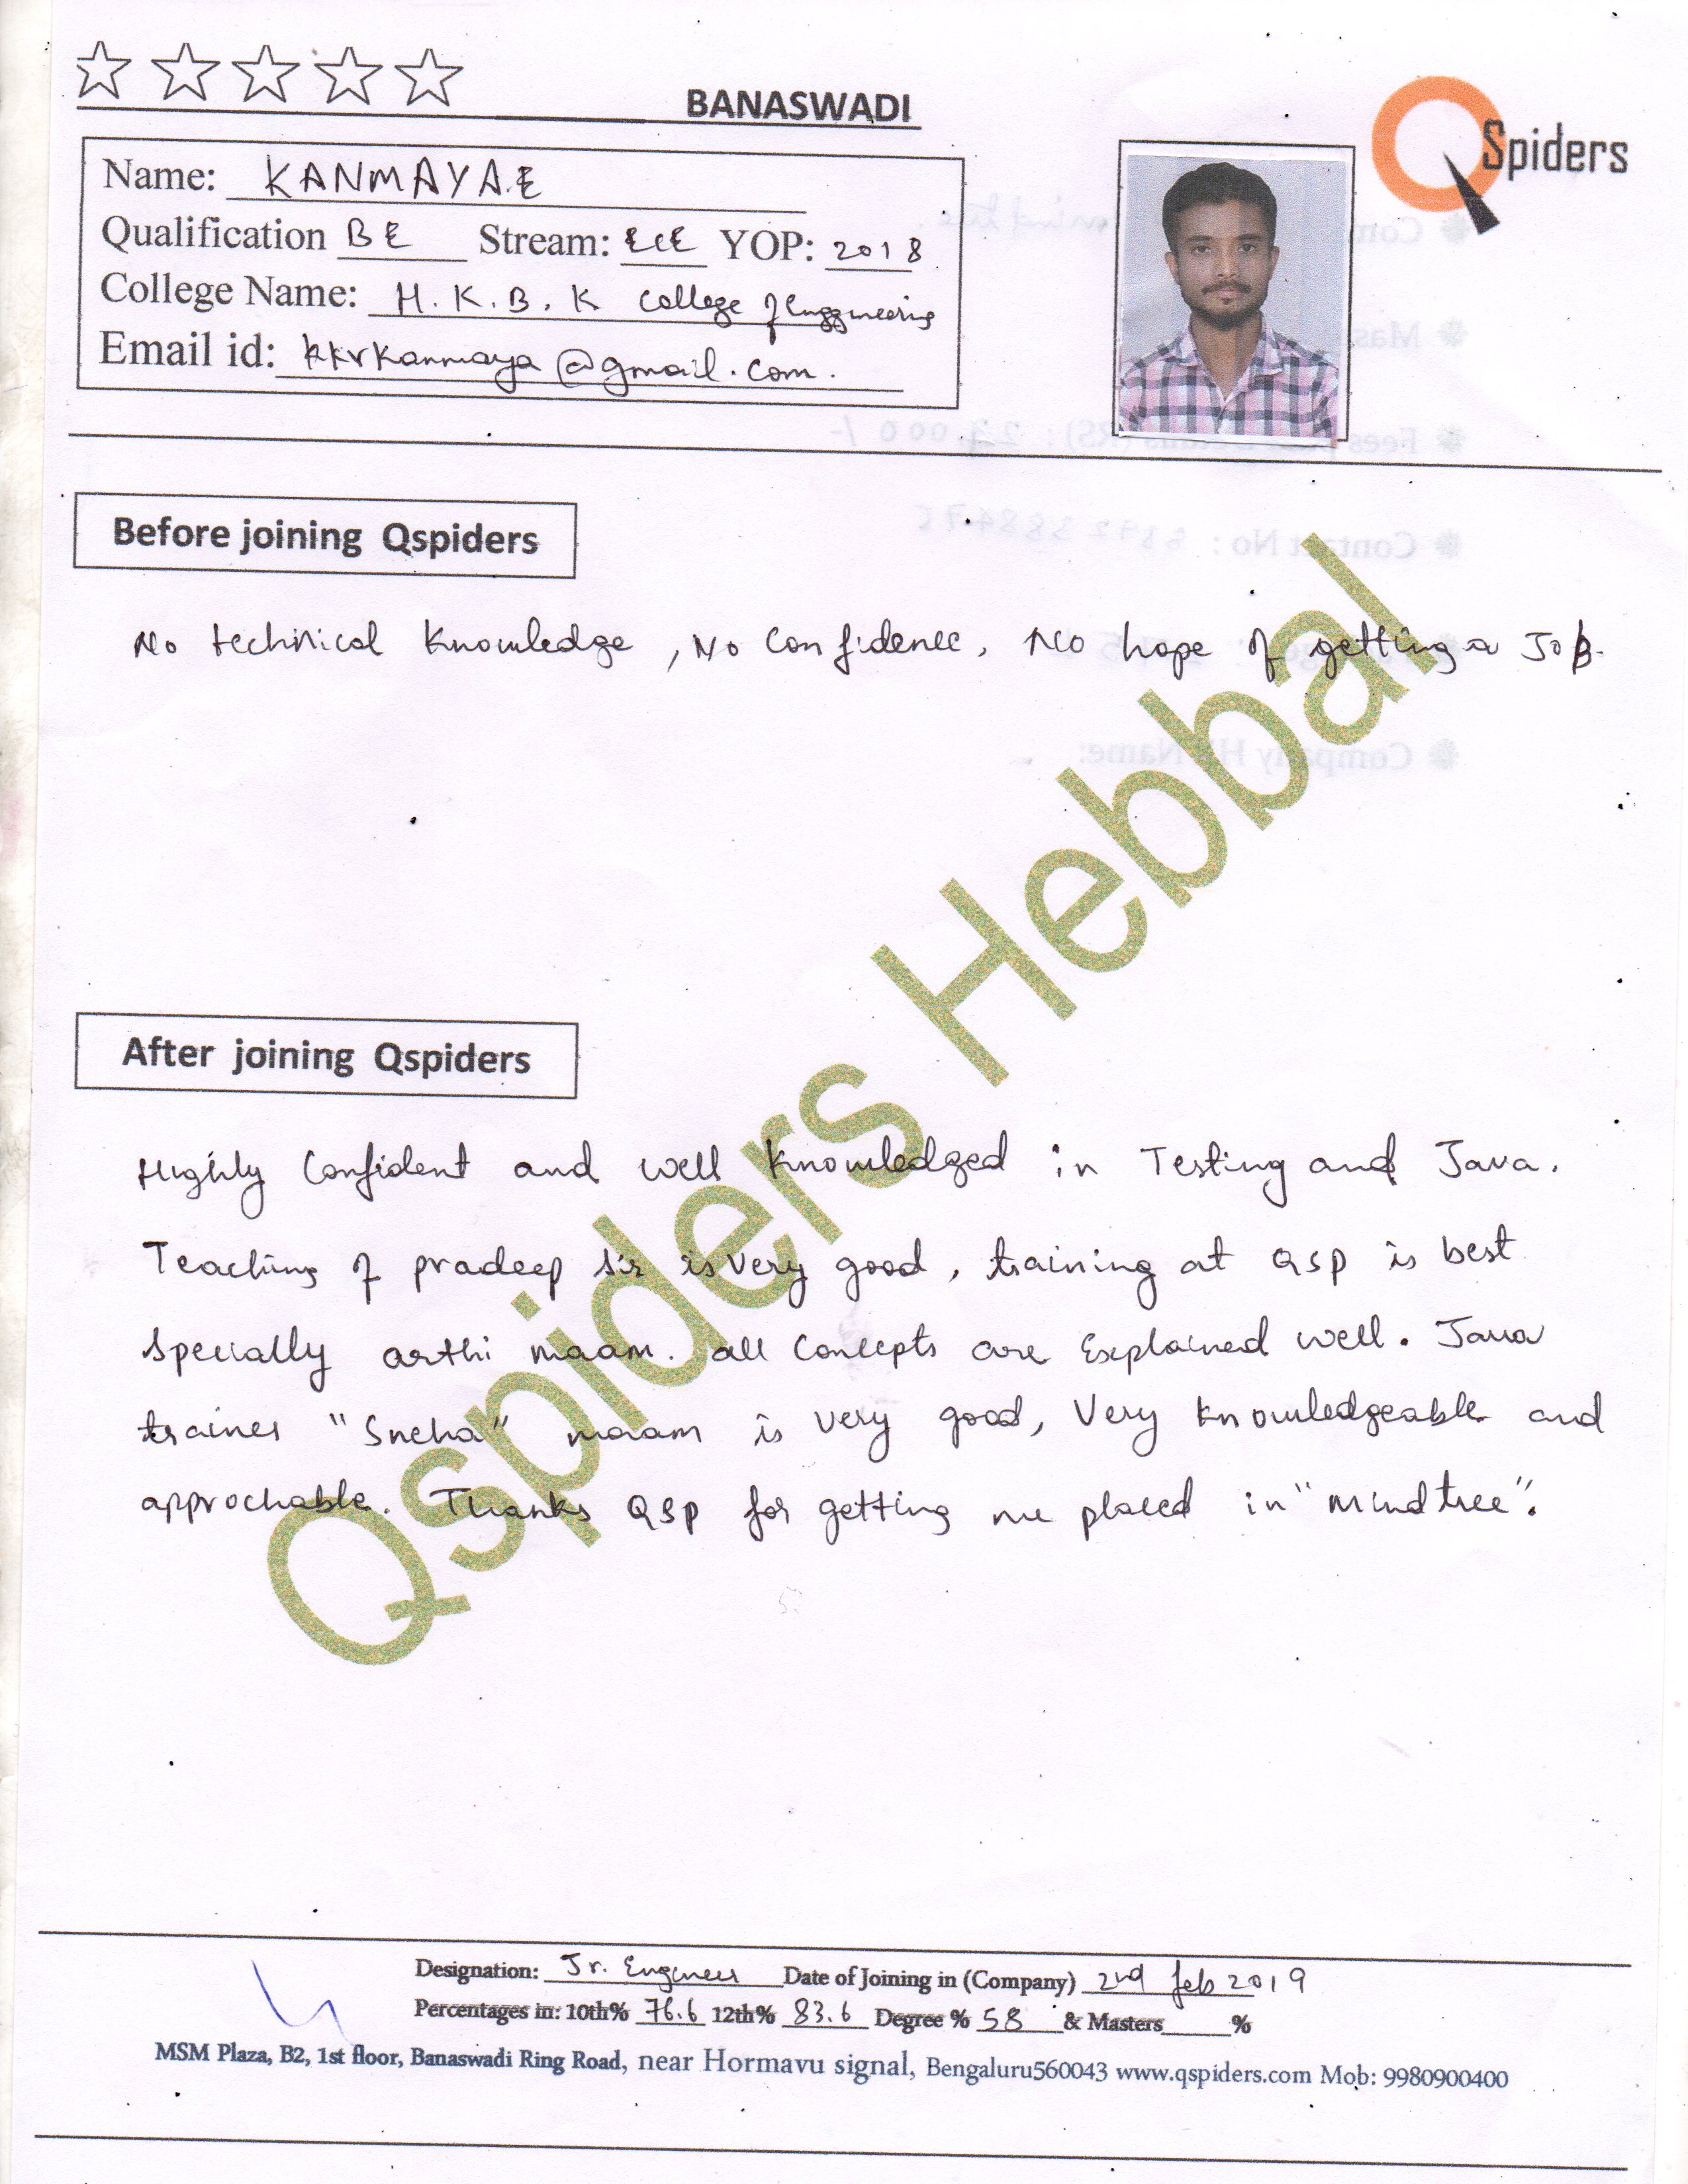 BANASWADI
QSpiders
Name: KANMAYA.E
Qualification BE Stream: ECE YOP: 2018
College Name: H.K.B.K College of Enggineering
Email id: kkrkanmaya@gmail.com.
Before joining Qspiders
No technical knowledge, No confidence, No hope of getting a JOB.
After joining Qspiders
Highly Confident and well knowledged in Testing and Java.
Teaching of pradeep sir is very good, training at QSP is best
specially arthi maam. all Concepts are Explained well. Java
trainer "Sneha" maam is very good, Very knowledgeable and
approchable. Thanks QSP for getting me placed in "mindtree".
Qspiders Hebbal
Designation: Jr. Engineer Date of Joining in (Company) 2nd feb 2019
Percentages in: 10th% 76.6 12th% 83.6 Degree % 58 & Masters %
MSM Plaza, B2, 1st floor, Banaswadi Ring Road, near Hormavu signal, Bengaluru560043 www.qspiders.com Mob: 9980900400